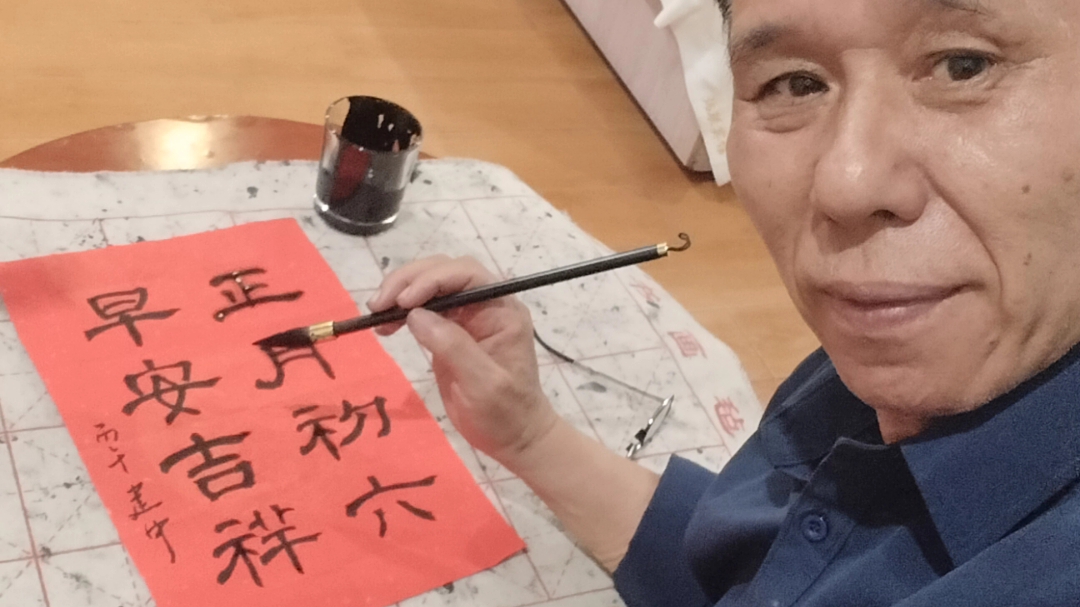 正月初六
早安吉祥
丙午 建中
画毡